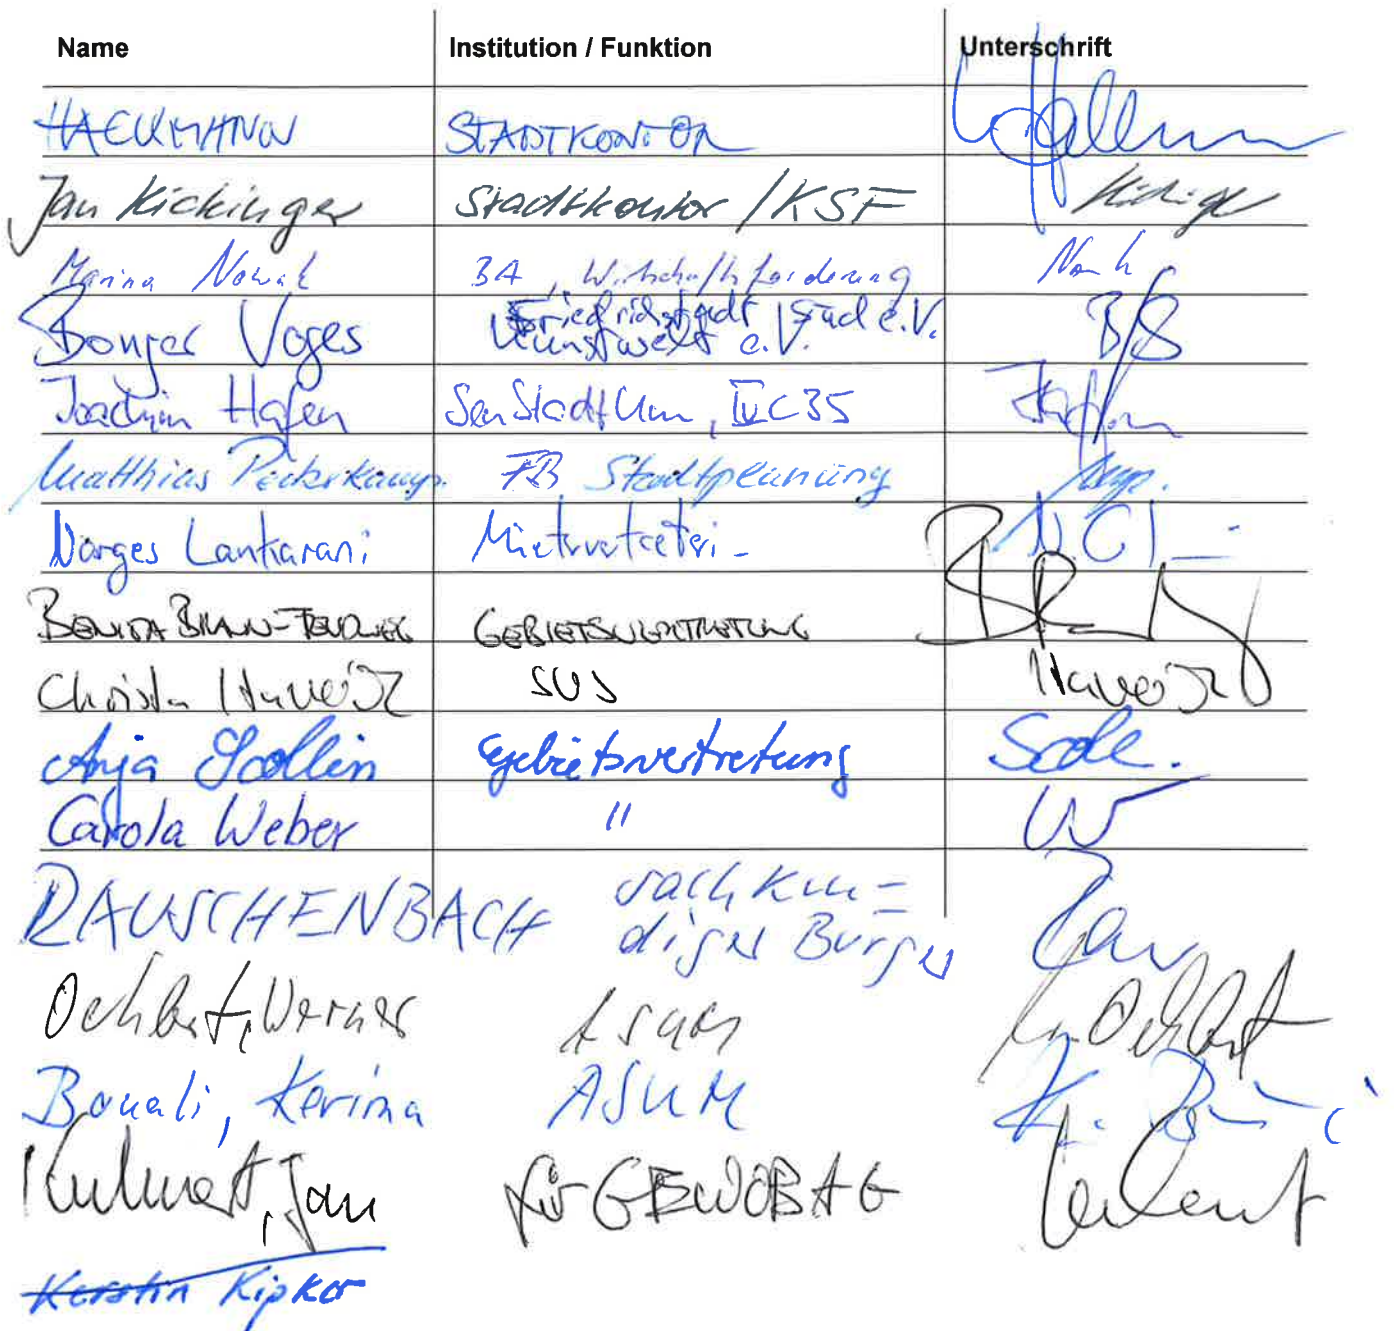 Name Institution / Funktion Unterschrift
HACKMANN STADTKONTOR
Jan Kickinger Stadtkontor / KSF
Marina Nowak BA, Wirtschaftsförderung
Friedrichstadt Süd e.V.
Bonger Voges Kunstwelt e.V.
Joachim Hafen SenStadtUm, IV C 35
Matthias Peckskamp. FB Stadtplanung
Narges Lankarani Mietervertreteri-
BENITA BRAUN-FEUERWEG GEBIETSVERTRETUNG
Christa SUS
Anja Scollin Gebietsvertretung Scole.
Carola Weber " W
RAUSCHENBACH sachkun=
diger Bürger Rau
Oehlert, Werner Asum Oehlert
Bouali, Kerima ASUM K. B
Kuhnert, Jan für GEWOBAG
Kerstin Kipker